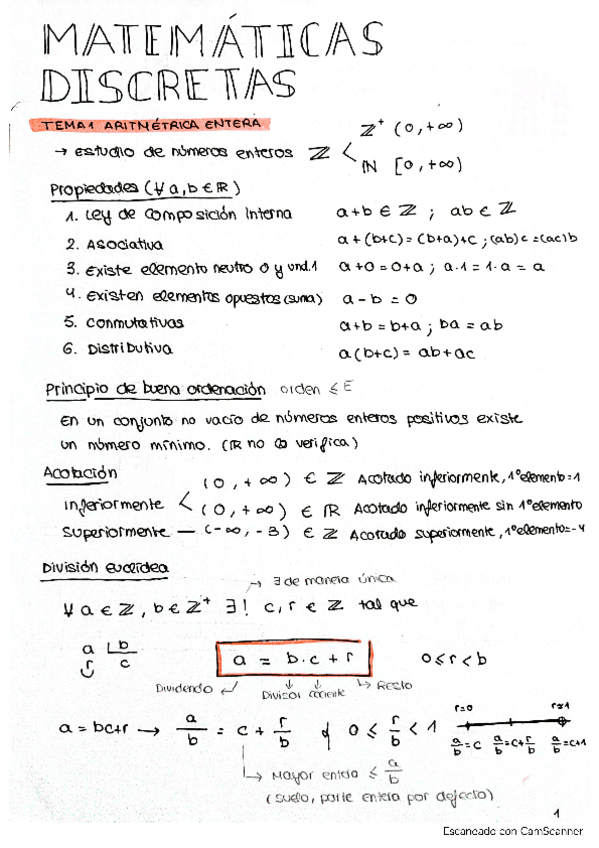 MATEMÁTICAS
DISCRETAS
TEMA 1 ARITMÉTRICA ENTERA
→ estudio de números enteros ℤ < ℤ⁺ (0,+∞)
ℕ [0,+∞)
Propiedades (∀ a,b ∈ ℝ)
1. Ley de composición interna a+b ∈ ℤ ; ab ∈ ℤ
2. Asociativa a+(b+c)=(b+a)+c ; (ab)c=(ac)b
3. Existe elemento neutro 0 y und.1 a+0=0+a ; a·1=1·a=a
4. Existen elementos opuestos (suma) a-b=0
5. Conmutativas a+b=b+a ; ba=ab
6. Distributiva a(b+c)=ab+ac
Principio de buena ordenación orden ≤ E
En un conjunto no vacío de números enteros positivos existe
un número mínimo. (ℝ no lo verifica)
Acotación
(0,+∞) ∈ ℤ Acotado inferiormente, 1º elemento=1
inferiormente < (0,+∞) ∈ ℝ Acotado inferiormente sin 1º elemento
superiormente — (-∞,-3) ∈ ℤ Acotado superiormente, 1º elemento=-4
División euclídea
→ ∃ de manera única
∀ a ∈ ℤ, b ∈ ℤ⁺ ∃! c,r ∈ ℤ tal que
a |b
r c
a = b·c + r
0 ≤ r < b
Dividendo Divisor cociente Resto
a=bc+r → a/b = c + r/b y 0 ≤ r/b < 1
r=0 r=1
a/b=c a/b=c+r/b a/b=c+1
→ Mayor entero ≤ a/b
(suelo, parte entera por defecto)
1
Escaneado con CamScanner